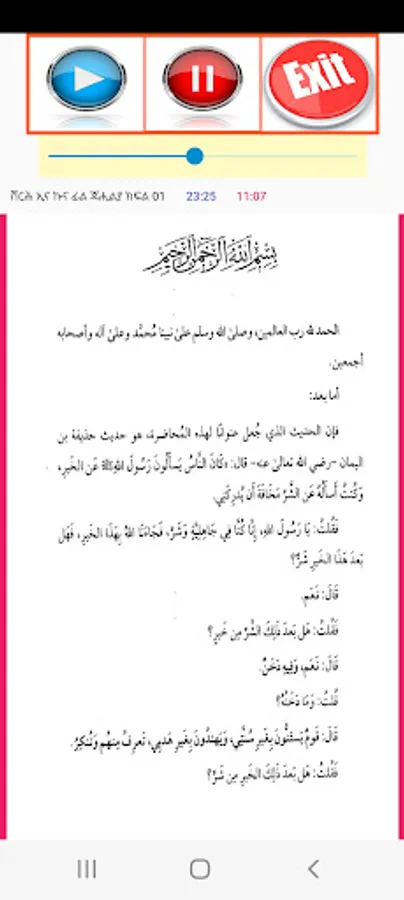 Exit
ሸርሕ ኢና ኩና ፊል ጃሒሊያ ክፍል 01 23:25 11:07
بِسْمِ اللَّهِ الرَّحْمَنِ الرَّحِيمِ
الحمد لله رب العالمين، وصلىٰ الله وسلم علىٰ نبينا مُحمَّد وعلىٰ آله وأصحابه
أجمعين.
أما بعد:
فإن الحديث الذي جُعل عنوانًا لهذه المُحاضرة، هو حديث حذيفة بن
اليمان -رضي الله تعالىٰ عنه- قال: «كَانَ النَّاسُ يَسأَلُونَ رَسُولَ اللهِ ﷺ عَنِ الخَيرِ،
وَكُنتُ أَسأَلُهُ عَنِ الشَّرِّ مَخَافَةَ أَن يُدرِكَنِي.
فَقُلتُ: يَا رَسُولَ اللهِ، إِنَّا كُنَّا فِي جَاهِلِيَّةٍ وَشَرٍّ، فَجَاءَنَا اللهُ بِهَذَا الخَيرِ، فَهَل
بَعدَ هَذَا الخَيرِ شَرٌّ؟
قَالَ: نَعَم.
فَقُلتُ: هَل بَعدَ ذَلِكَ الشَّرِّ مِن خَيرٍ؟
قَالَ: نَعَم، وَفِيهِ دَخَنٌ.
قُلتُ: وَمَا دَخَنُهُ؟
قَالَ: قَومٌ يَستَنُّونَ بِغَيرِ سُنَّتِي، وَيَهتَدُونَ بِغَيرِ هَديِي، تَعرِفُ مِنهُم وَتُنكِرُ.
فَقُلتُ: هَل بَعدَ ذَلِكَ الخَيرِ مِن شَرٍّ؟